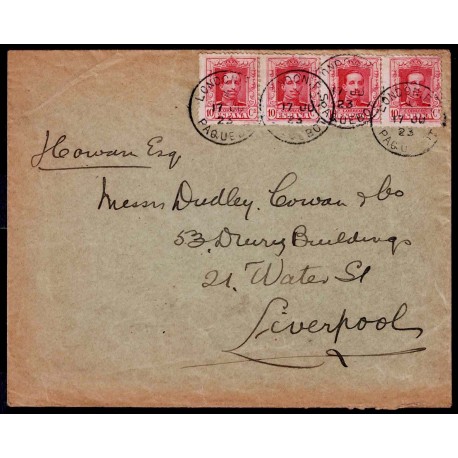 LONDON F.S.
17 JU
23
PAQUEBOT
10 10 10 10
Cowan Esq.
Messrs Dudley, Cowan & Co
53, Drury Buildings
21, Water St
Liverpool